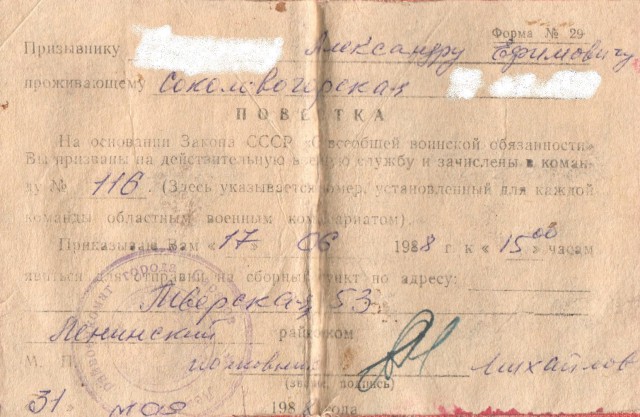 Форма № 29
Призывнику Александру Ефимовичу
проживающему Соколовогорская
ПОВЕСТКА
На основании Закона СССР «О всеобщей воинской обязанности»
Вы призваны на действительную военную службу и зачислены в коман-
ду № 116. (Здесь указывается номер, установленный для каждой
команды областным военным комиссариатом).
Приказываю Вам «17» 06 1988 г. к «15 00» часам
явиться для отправки на сборный пункт по адресу:
Тверская, 53
Ленинский райвоенком
М. П. полковник Михайлов
(звание, подпись)
31 мая 1988 года